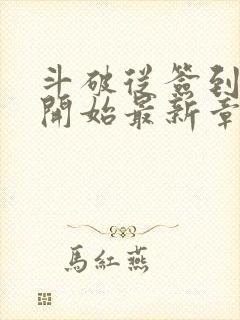 斗破從簽到
開始最新章
馬紅燕